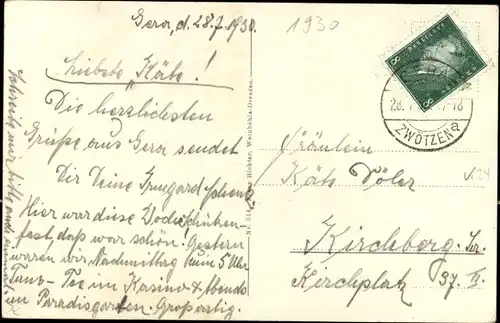 Gera, d. 28.7.1930.
1930
Liebste Käte!
Die herzlichsten
Grüße aus Gera sendet
Dir Deine Irmgard
Hier war diese Woche Schützen-
fest, das war schön. Gestern
waren wir Nachmittag zum 5 Uhr
Tanz-Tee im Kasino & Abends
im Paradiesgarten. Großartig.
Schreib mir bitte auch einmal
Fräulein
Käte
Kirchberg Sa.
Kirchplatz 37. II.
8 8
ZWÖTZEN
28.7
Richter, Weinböhla-Dresden